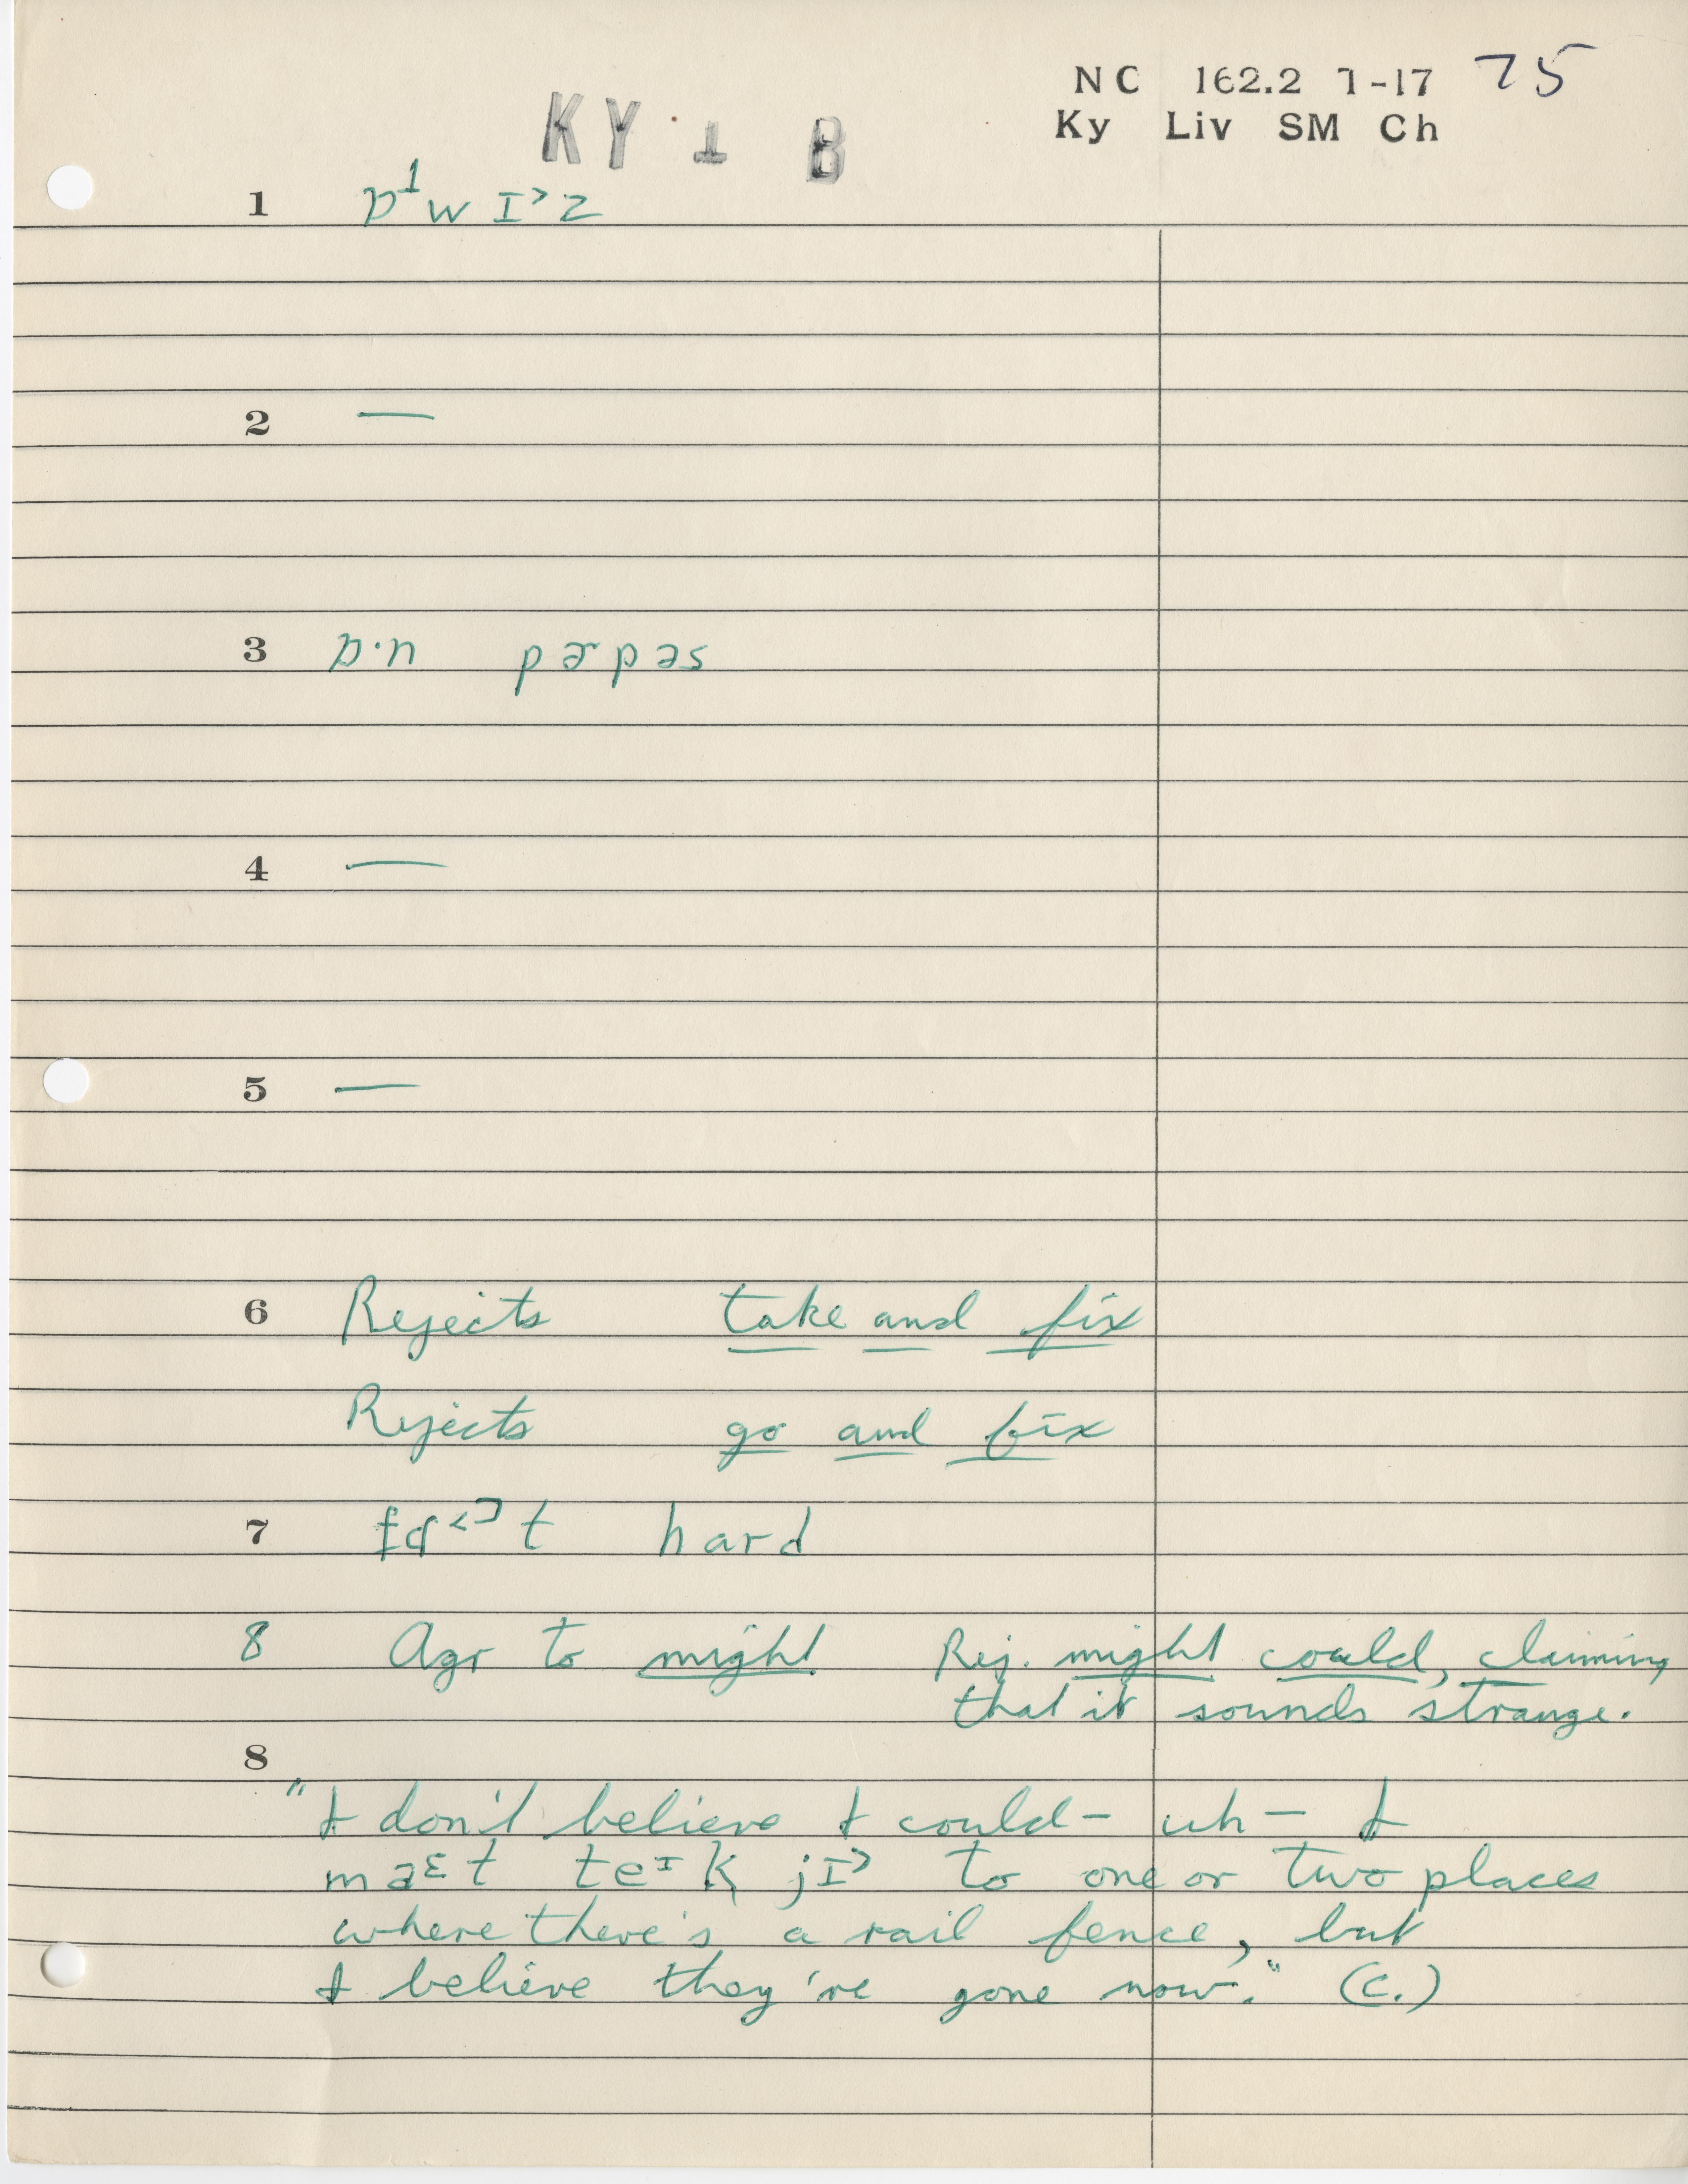 NC 162.2 7-17 75
KY 1 B
Ky Liv SM Ch
1
2 —
3 ɒ·n pɚpəs
4 —
5 —
6 Rejects take and fix
Rejects go and fix
7 hard
8 Agr to might Rej. might could, claiming
that it sounds strange.
8
"I don't believe I could — uh — I
maᵋt teᶦk jɪ˃ to one or two places
where there's a rail fence, but
I believe they're gone now." (c.)